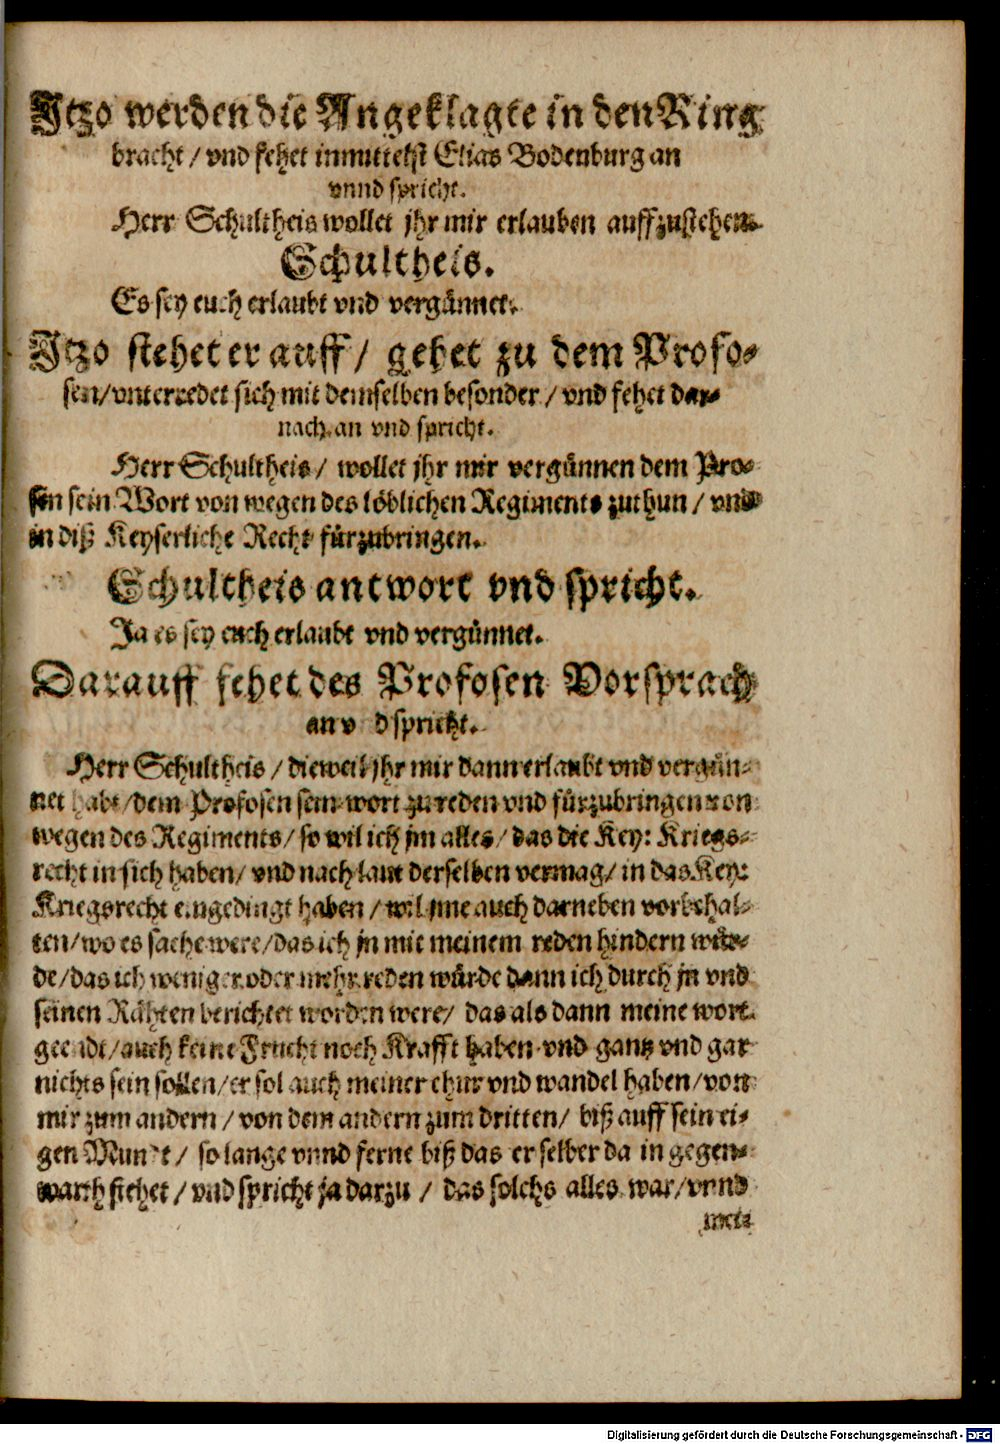 Itzo werden die Angeklagte in den Ring
bracht / vnd fehet inmittelst Elias Bodenburg an
vnnd spricht.
Herr Schultheis wollet jhr mir erlauben auffzustehen.
Schultheis.
Es sey euch erlaubt vnd vergünnet.
Itzo stehet er auff / gehet zu dem Profo-
sen / vnterredet sich mit demselben besonder / vnd fehet dar-
nach an vnd spricht.
Herr Schultheis / wollet jhr mir vergünnen dem Pro-
sen sein Wort von wegen des löblichen Regiments zuthun / vnd
in diß Keyserliche Recht fürzubringen.
Schultheis antwort vnd spricht.
Ja es sey euch erlaubt vnd vergünnet.
Darauff fehet des Profosen Vorsprach
an v d spricht.
Herr Schultheis / dieweil jhr mir dann erlaubt vnd vergün-
net habt / dem Profosen sein wort zu reden vnd fürzubringen von
wegen des Regiments / so wil ich jm alles / das die Key: Kriegs-
recht in sich haben / vnd nach laut derselben vermag / in das Key:
Kriegsrecht eingedingt haben / wil jme auch darneben vorbehal-
ten / wo es sache were / das ich jn mit meinem reden hindern wür-
de / das ich weniger oder mehr reden würde dann ich durch jn vnd
seinen Rähten berichtet worden were / das als dann meine wort
geendt / auch keine Frucht noch Krafft haben vnd gantz vnd gar
nichts sein sollen / er sol auch meiner ehur vnd wandel haben / von
mir zum andern / von dem andern zum dritten / biß auff sein ei-
gen Mundt / so lange vnnd ferne biß das er selber da in gegen-
warth stehet / vnd spricht ja darzu / das solchs alles war / vnnd
mei-
Digitalisierung gefördert durch die Deutsche Forschungsgemeinschaft - DFG